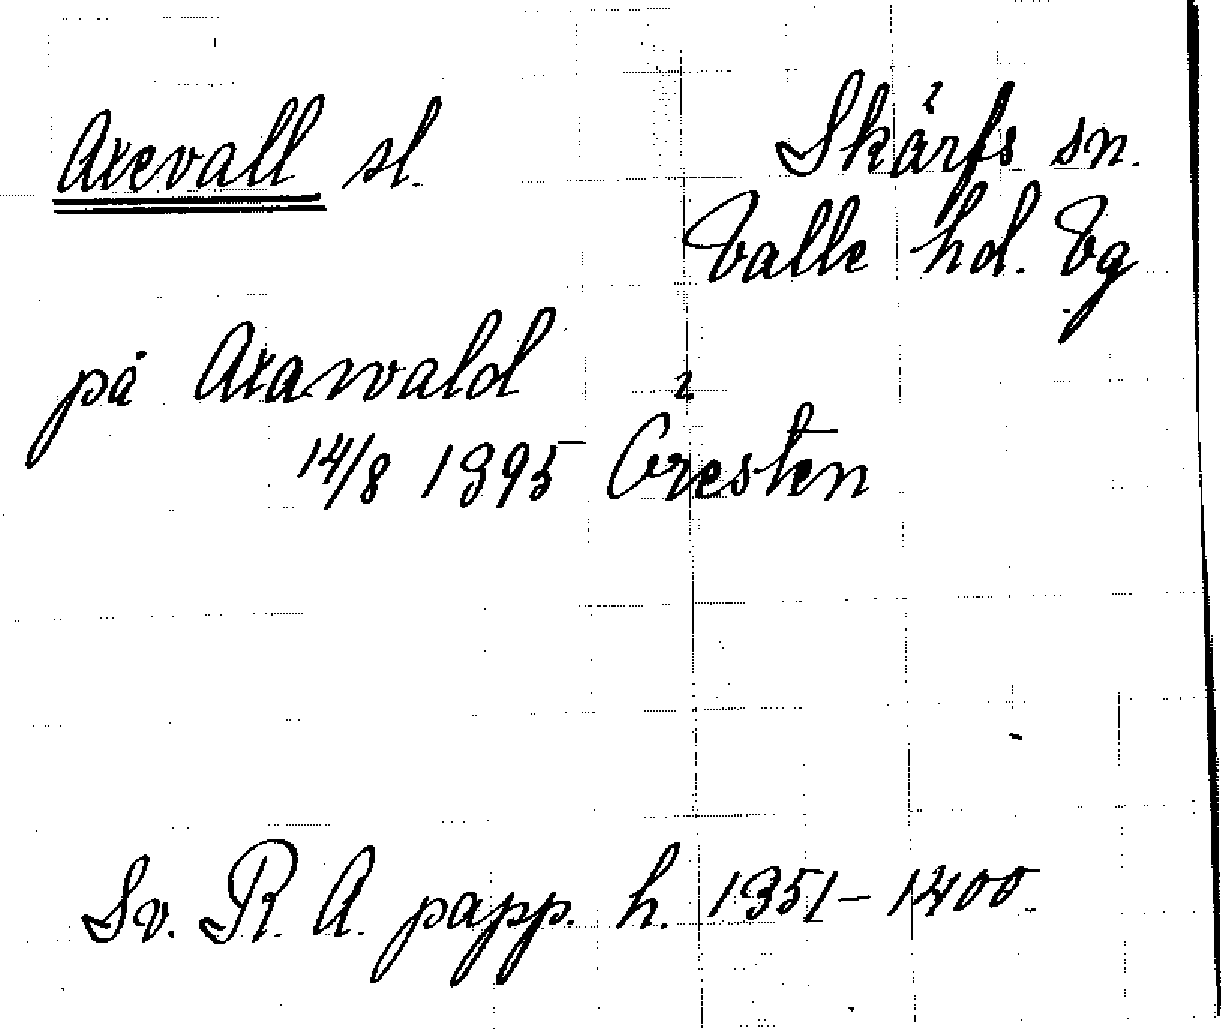 Axevall sl. Skärfs sn.
Valle hd. Vg
på Axawald
14/8 1395 Öresten
Sv. R. A. papp. h. 1351-1400.